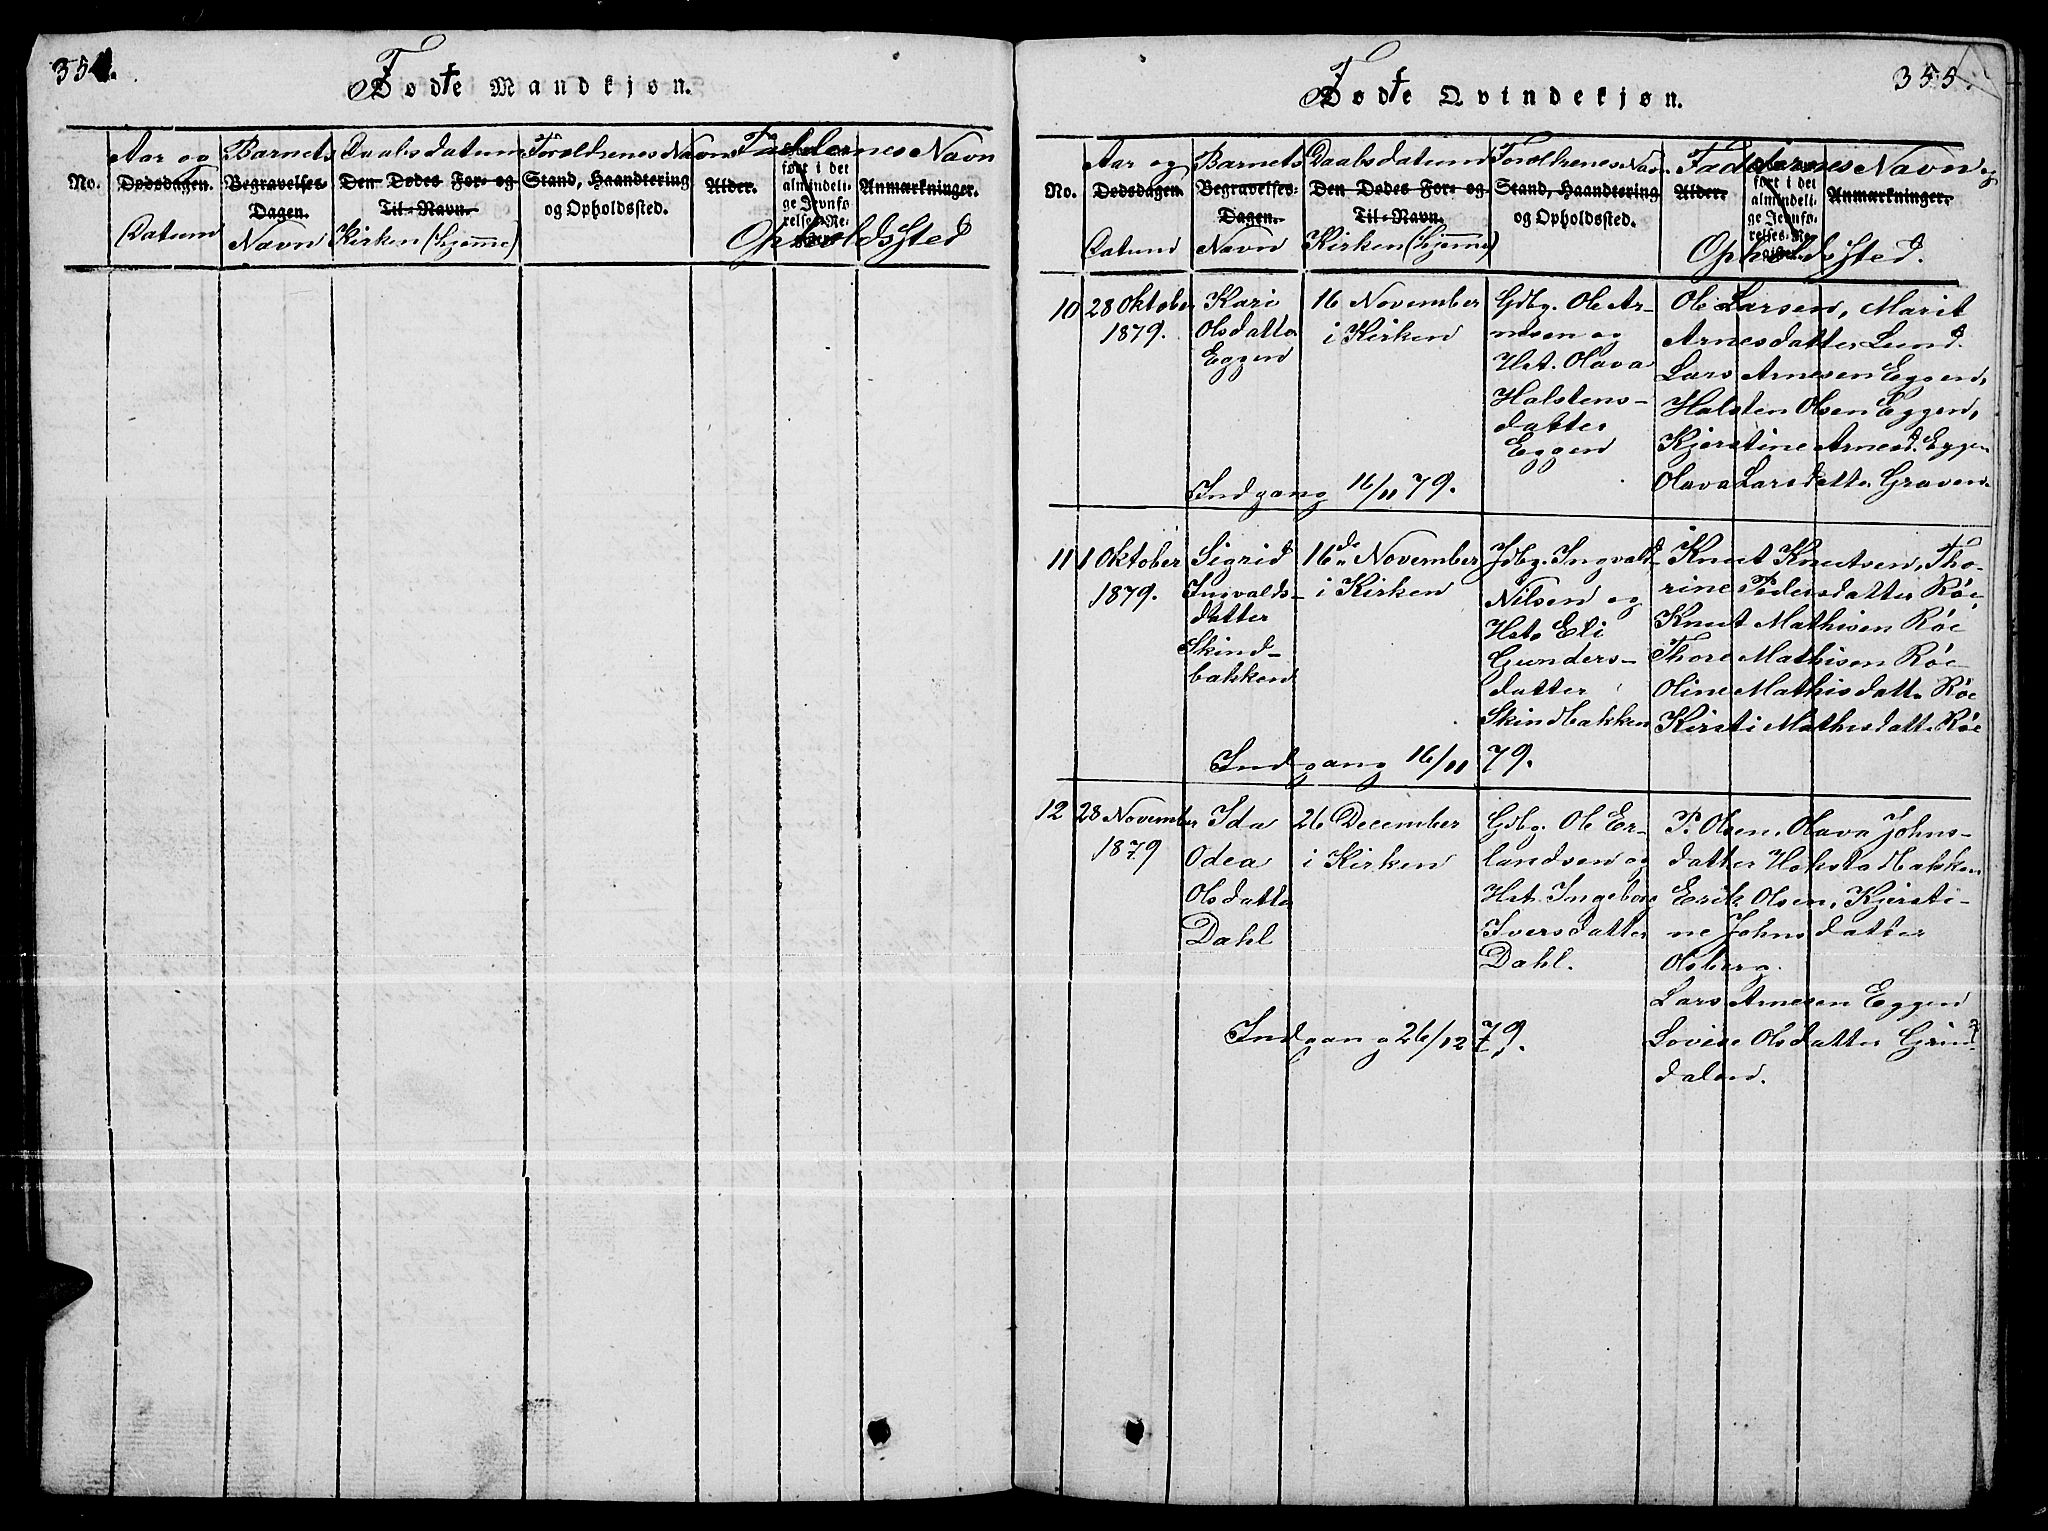 354.
Fødte Mandkjøn.
No.
Aar og
Dødsdagen.
Datum
Barnets
Begravelses-
Dagen.
Navn
Daabsdatum
Den Dødes For- og
Til-Navn.
Kirken (hjemme)
Forældrenes Navn
Stand, Haandtering
og Opholdssted.
Faddernes Navn
Alder.
ført i det
almindeli-
ge Jevnfø-
relses-Re-
Anmærkninger.
Opholdssted
355.
Fødte Qvindekjøn.
No.
Aar og
Dødsdagen.
Datum
Barnets
Begravelses-
Dagen.
Navn
Daabsdatum
Den Dødes For- og
Til-Navn.
Kirken (hjemme)
Forældrenes Navn
Stand, Haandtering
og Opholdssted.
Faddernes Navn og
Alder.
ført i det
almindeli-
ge Jevnfø-
relses-Re-
Anmærkninger.
Opholdssted.
10
28 Oktober
1879.
Kari
Olsdatter
Eggen
16 November
i Kirken
Gdbg. Ole Ar-
nesen og
Hst. Olava
Halstens-
datter
Eggen
Ole Larsen, Marit
Arnesdatter Lund.
Lars Arnesen Eggen,
Halsten Olsen Eggen,
Kjerstine Arnesd. Eggen
Olava Larsdatter Graven.
Indgang 16/11 79.
11
1 Oktober
1879.
Sigrid
Ingvalds-
datter
Skind-
bakken
16de November
i Kirken
Jdbg. Ingvald
Nilsen og
Hst. Eli
Gunders-
datter
Skindbakken
Knut Knutsen, Tho-
rine Pedersdatter Røe,
Knut Mathisen Røe
Thore Mathisen Røe
Oline Mathisdatt. Røe
Kirsti Mathisdatt. Røe
Indgang 16/11 79.
12
28 November
1879
Ida
Odea
Olsdatter
Dahl
26 December
i Kirken
Gdbg. Ole Er-
landsen og
Hst. Ingeborg
Iversdatter
Dahl.
P. Olsen, Olava Johns-
datter Hokstadbakken
Erik Olsen, Kjersti-
ne Johnsdatter
Olsberg.
Lars Arnesen Eggen
Lovise Olsdatter Grind-
dalen.
Indgang 26/12 79.